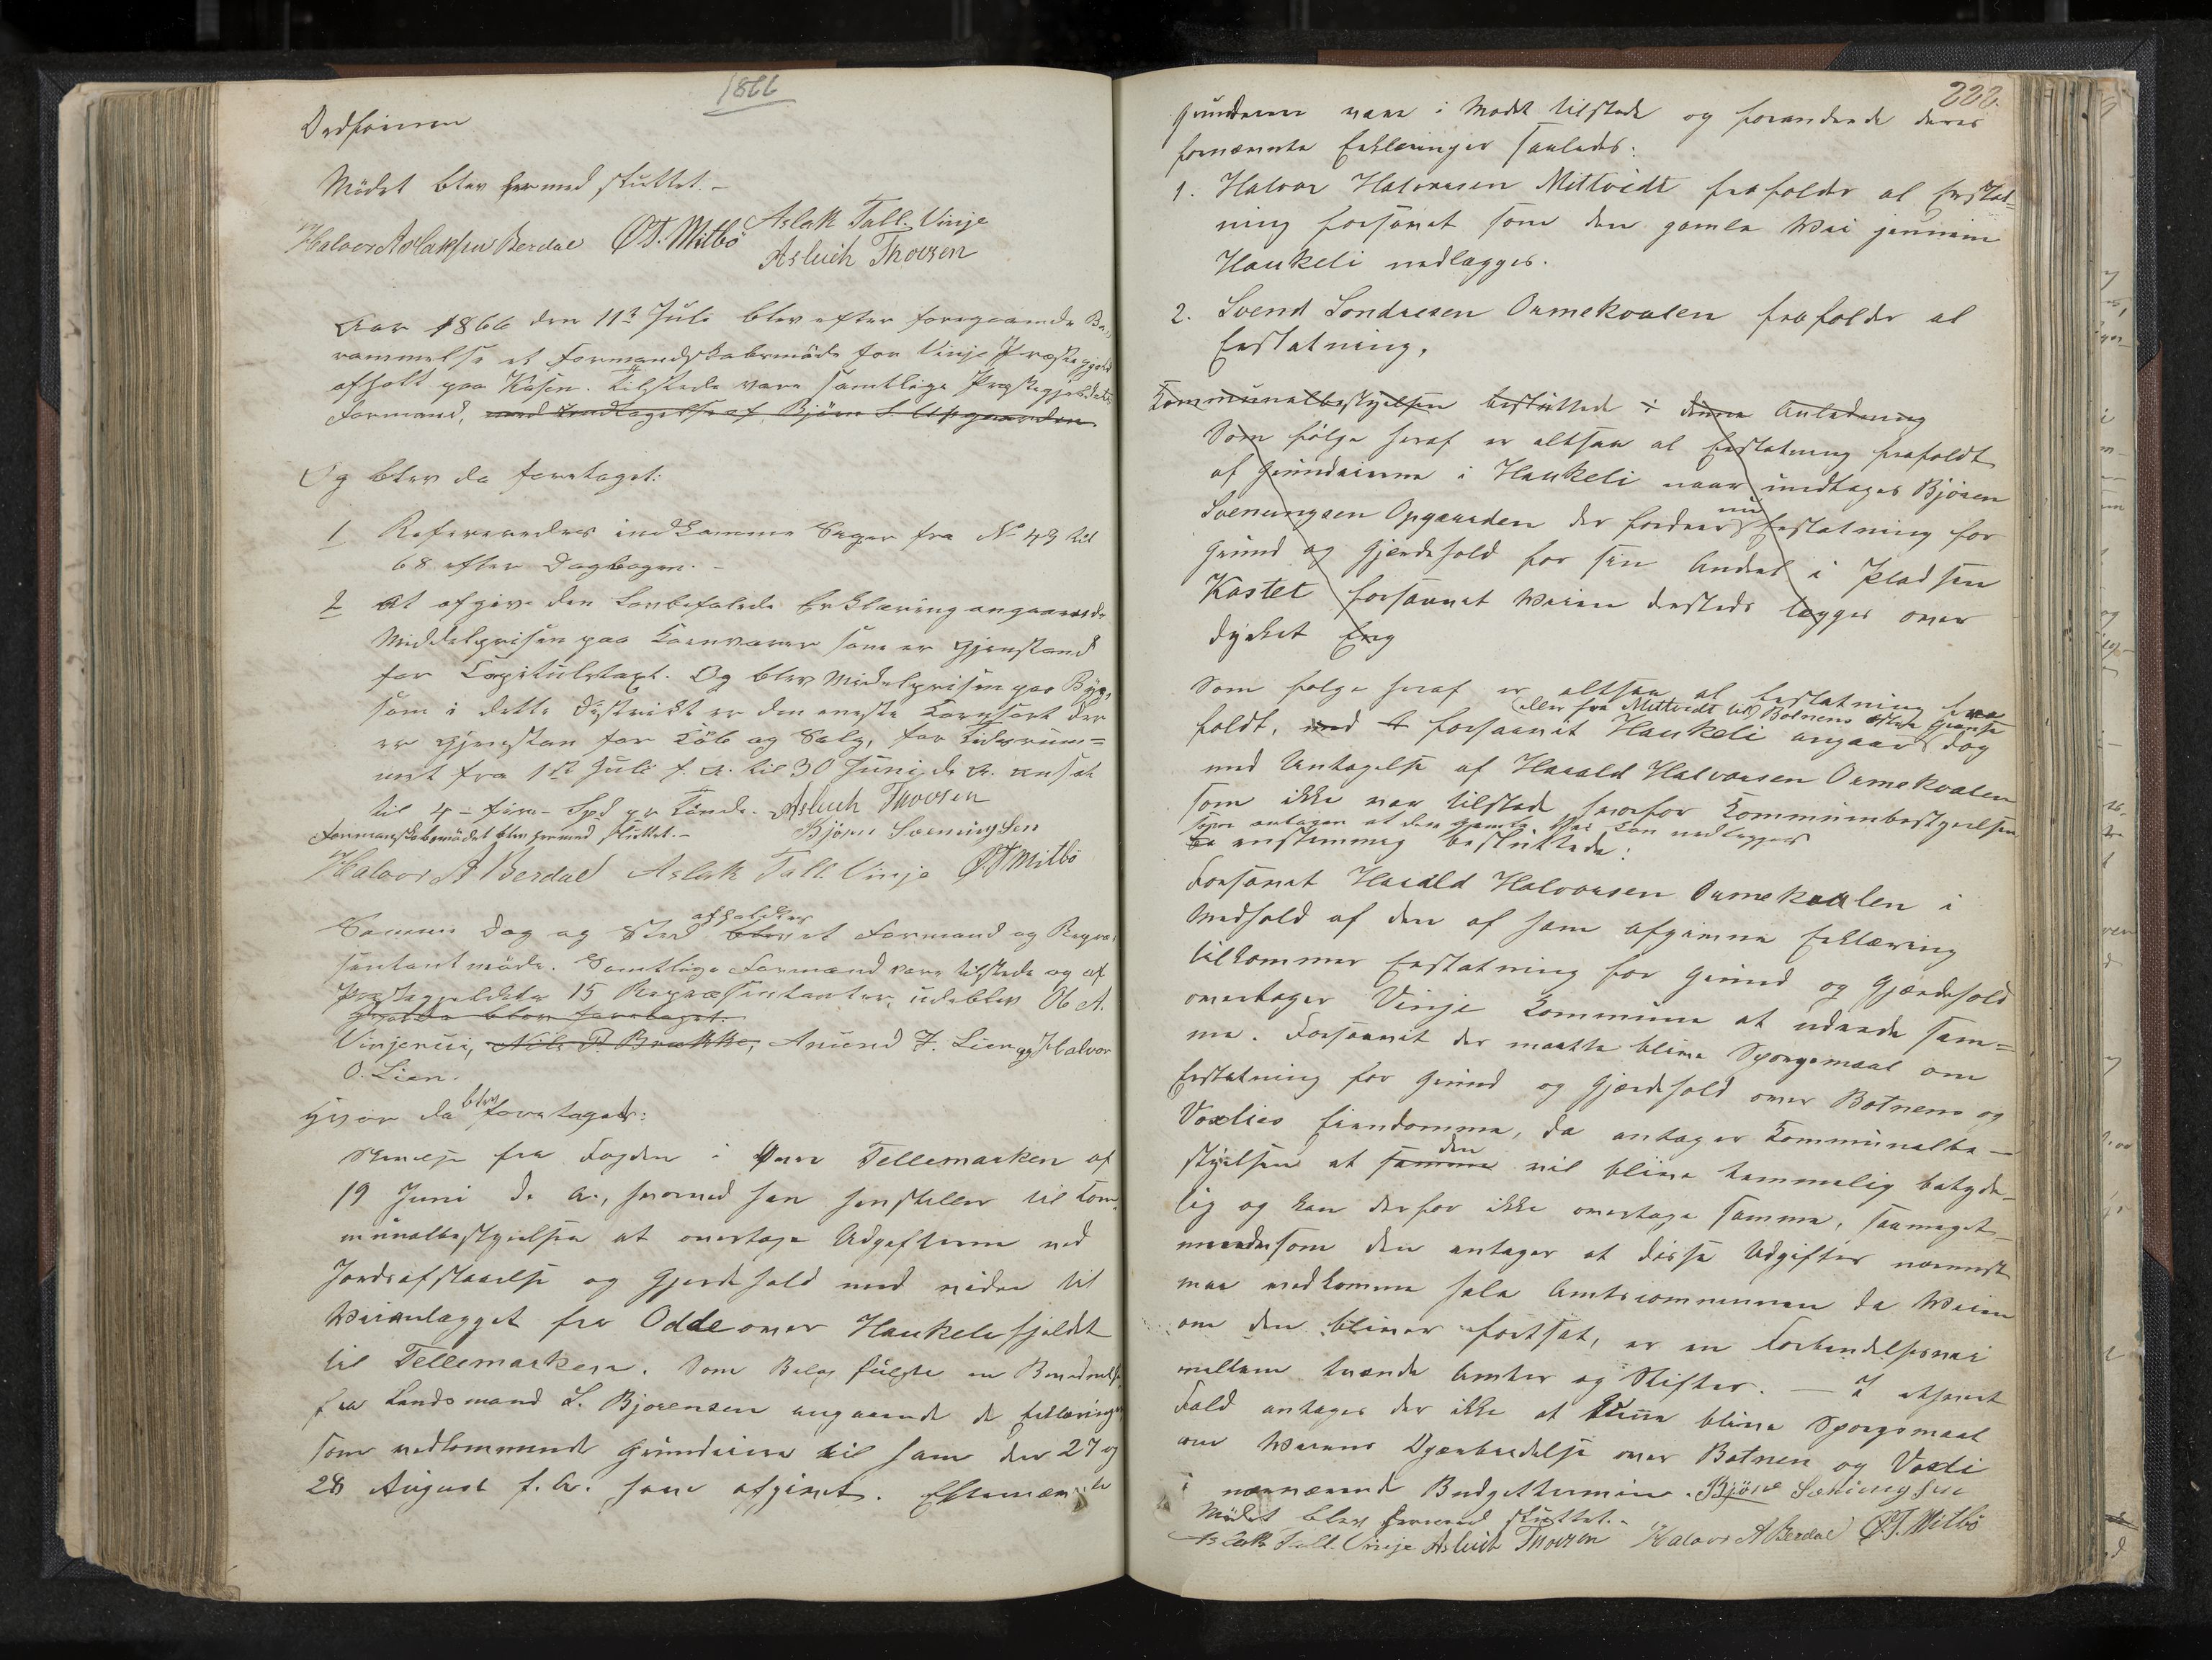 1866
Ordføreren
Mödet blev hermed sluttet. –
Halvor Aslaksen Berdal Ø.T. Mitbö Aslak Tall. Vinje
Asluich Thovsen
Aar 1866 den 11te Juli blev efter foregaaende Be-
rammelse et Formandskabsmöde for Vinje Præstegjeld
afholt paa Kosin. Tilstede vare samtlige Præstegjeldets
Formænd, med Undtagelse af Bjørn S. Upgaarden
Og blev da foretaget:
1 Refereredes indkomne Sager fra No 49 til
68 efter Dagbogen. –
2 At afgive den Lovbefalede Erklæring angaaende
Middelprisen paa Kornvarer som er Gjenstand
for Capitulstaxt. Og blev Midelprisen paa Byg,
som i dette Distrikt er den eneste Kornsort der
er Gjenstan for Köb og Salg, for Tidsrum=
met fra 1st Juli f. A. til 30 Juni d. A. ansat
til 4 – fire – Spd pr Tönde. Asluich Thovsen
Formanskabsmödet blev hermed sluttet. – Bjørn Svenungsen
Halvor A Berdal Aslak Tall. Vinje Ø.T Mitbö
Samme Dag og Sted afholdtes blev et Formand og Repræ-
sentantmöde. Samtlige Formænd vare tilstede og af
Præstegjeldets 15 Repræsentanter, udeblev Ob A.
blev foretaget:
Vinjerui, Nils P. Brukke, Anund F. Lien og Halvor
O. Lien.
Hvor da blev foretaget:
Skrivelse fra Fogden i Øvre Tellemarken af
19 Juni d. A., hvorved han henstiller til Kom-
munalbestyrelsen at overtage Udgifterne ved
Jordafstaaelse og Gjerdehold med videre til
Veianlægget fra Odde over Haukelifjeldet
til Tellemarken. Som Bilag fulgte en Beretning
fra Landsmand L. Bjorensen angaaende de Erklæringer
som vedkommende Grundeiere til ham den 27 og
28 August f. A. have afgivet. Efternævnte
222.
Grundeiere vare i Mödet tilstede og forandrede deres
fornævnte Erklæringer saaledes:
1. Halvor Halvorsen Mittveidt frafalder al Erstat=
ning forsaavat som den gamle Vei gjennem
Haukeli nedlægges.
2. Svend Sondresen Ormekvalen frafalder al
Erstatning.
Kommunalbestyrelsen besluttede i denne Anledning
Som fölge heraf er altsaa al Erstatning frafaldt
af Grundeierne i Haukeli naar undtages Björen
Svenungsen Opgaarden der fordrer nu Erstatning for
Grund og Gjerdehold for sin Andeel i Pladsen
Kastet forsaavat Veien desteds lægges over
dyrket Eng
Som følge heraf er altsaa al Erstatning fra-
eller fra Mittveidt til Botnens östre Grænse
faldt, med forsaavit Haukeli angaar dog
med Untagelse af Harald Halvorsen Ormekvalen
som ikke var tilstede hvorfor Kommunebestyrelsen
som antager at den gamle Vei kan nedlægges
enstemmig besluttede:
Forsaavat Harald Halvorsen Ormekvalen i
Medhold af den af ham afgivne Erklæring
tilkommer Erstatning for Grund og Gjerdehold
overtager Vinje Kommune at udrede sam=
me. Forsaavit der maatte blive Spørgsmaal om
Erstatning for Grund og Gjerdehold over Botnens og
Voxlies Eiendomme, da antager Kommunalbe –
styrelsen at samme den vil blive temmelig betyde-
lig og kan derfor ikke overtage samme, saameget
mindre som den antager at disse Udgifter nærmest
maa vedkomme hele Amtscommunen da Veien
om den bliver fortsat, er en Forbindelsesvei
mellem tvende Amter og Stifter. – I ethvert
Fald antages der ikke at kunne blive Spørgsmaal
om Veiens Oparbeidelse over Botnen og Voxli
i nærværende Budgettermin. Bjørn Svenungsen
Mödet blev hermed sluttet. –
Aslak Tall. Vinje Asluich Thovsen Halvor A Berdal Ø.T. Mitbö